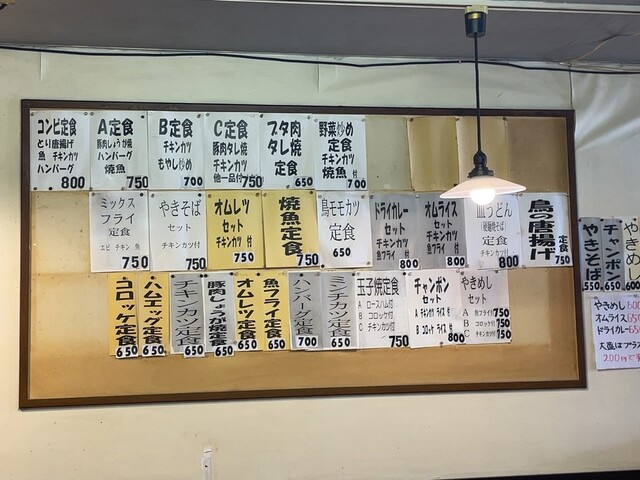 コンビ定食
とり唐揚げ
魚 チキンカツ
ハンバーグ
800
A定食
豚肉しょうが焼
ハンバーグ
焼魚
750
B定食
チキンカツ
もやし炒め
700
C定食
豚肉タレ焼
チキンカツ
他一品付
750
ブタ肉
タレ焼
定食
650
野菜炒め
定食
チキンカツ
焼魚 付
700
ミックス
フライ
定食
エビ チキン 魚
750
やきそば
セット
チキンカツ付
750
オムレツ
セット
チキンカツ 付
750
焼魚定食
750
鳥モモカツ
定食
650
ドライカレー
セット
チキンカツ
魚フライ 付
800
オムライス
セット
チキンカツ
魚フライ 付
800
皿うどん
定食
チキンカツ付
800
鳥の唐揚げ
定食
750
コロッケ定食
650
ハムエッグ定食
650
チキンカツ定食
650
豚肉しょうが焼定食
650
オムレツ定食
650
魚フライ定食
650
ハンバーグ定食
700
ミンチカツ定食
650
玉子焼定食
A ロースハム付
B コロッケ付
C チキンカツ付
750
チャンポン
セット
A チキンカツ ライス 付
B コロッケ ライス 付
800
やきめし
セット
A 魚フライ付 750
B コロッケ付 750
C チキンカツ付 750
やきそば
550
チャンポン
650
やきめ
600
やきめし 600
オムライス 650
ドライカレー 650
大盛はプラス
200円